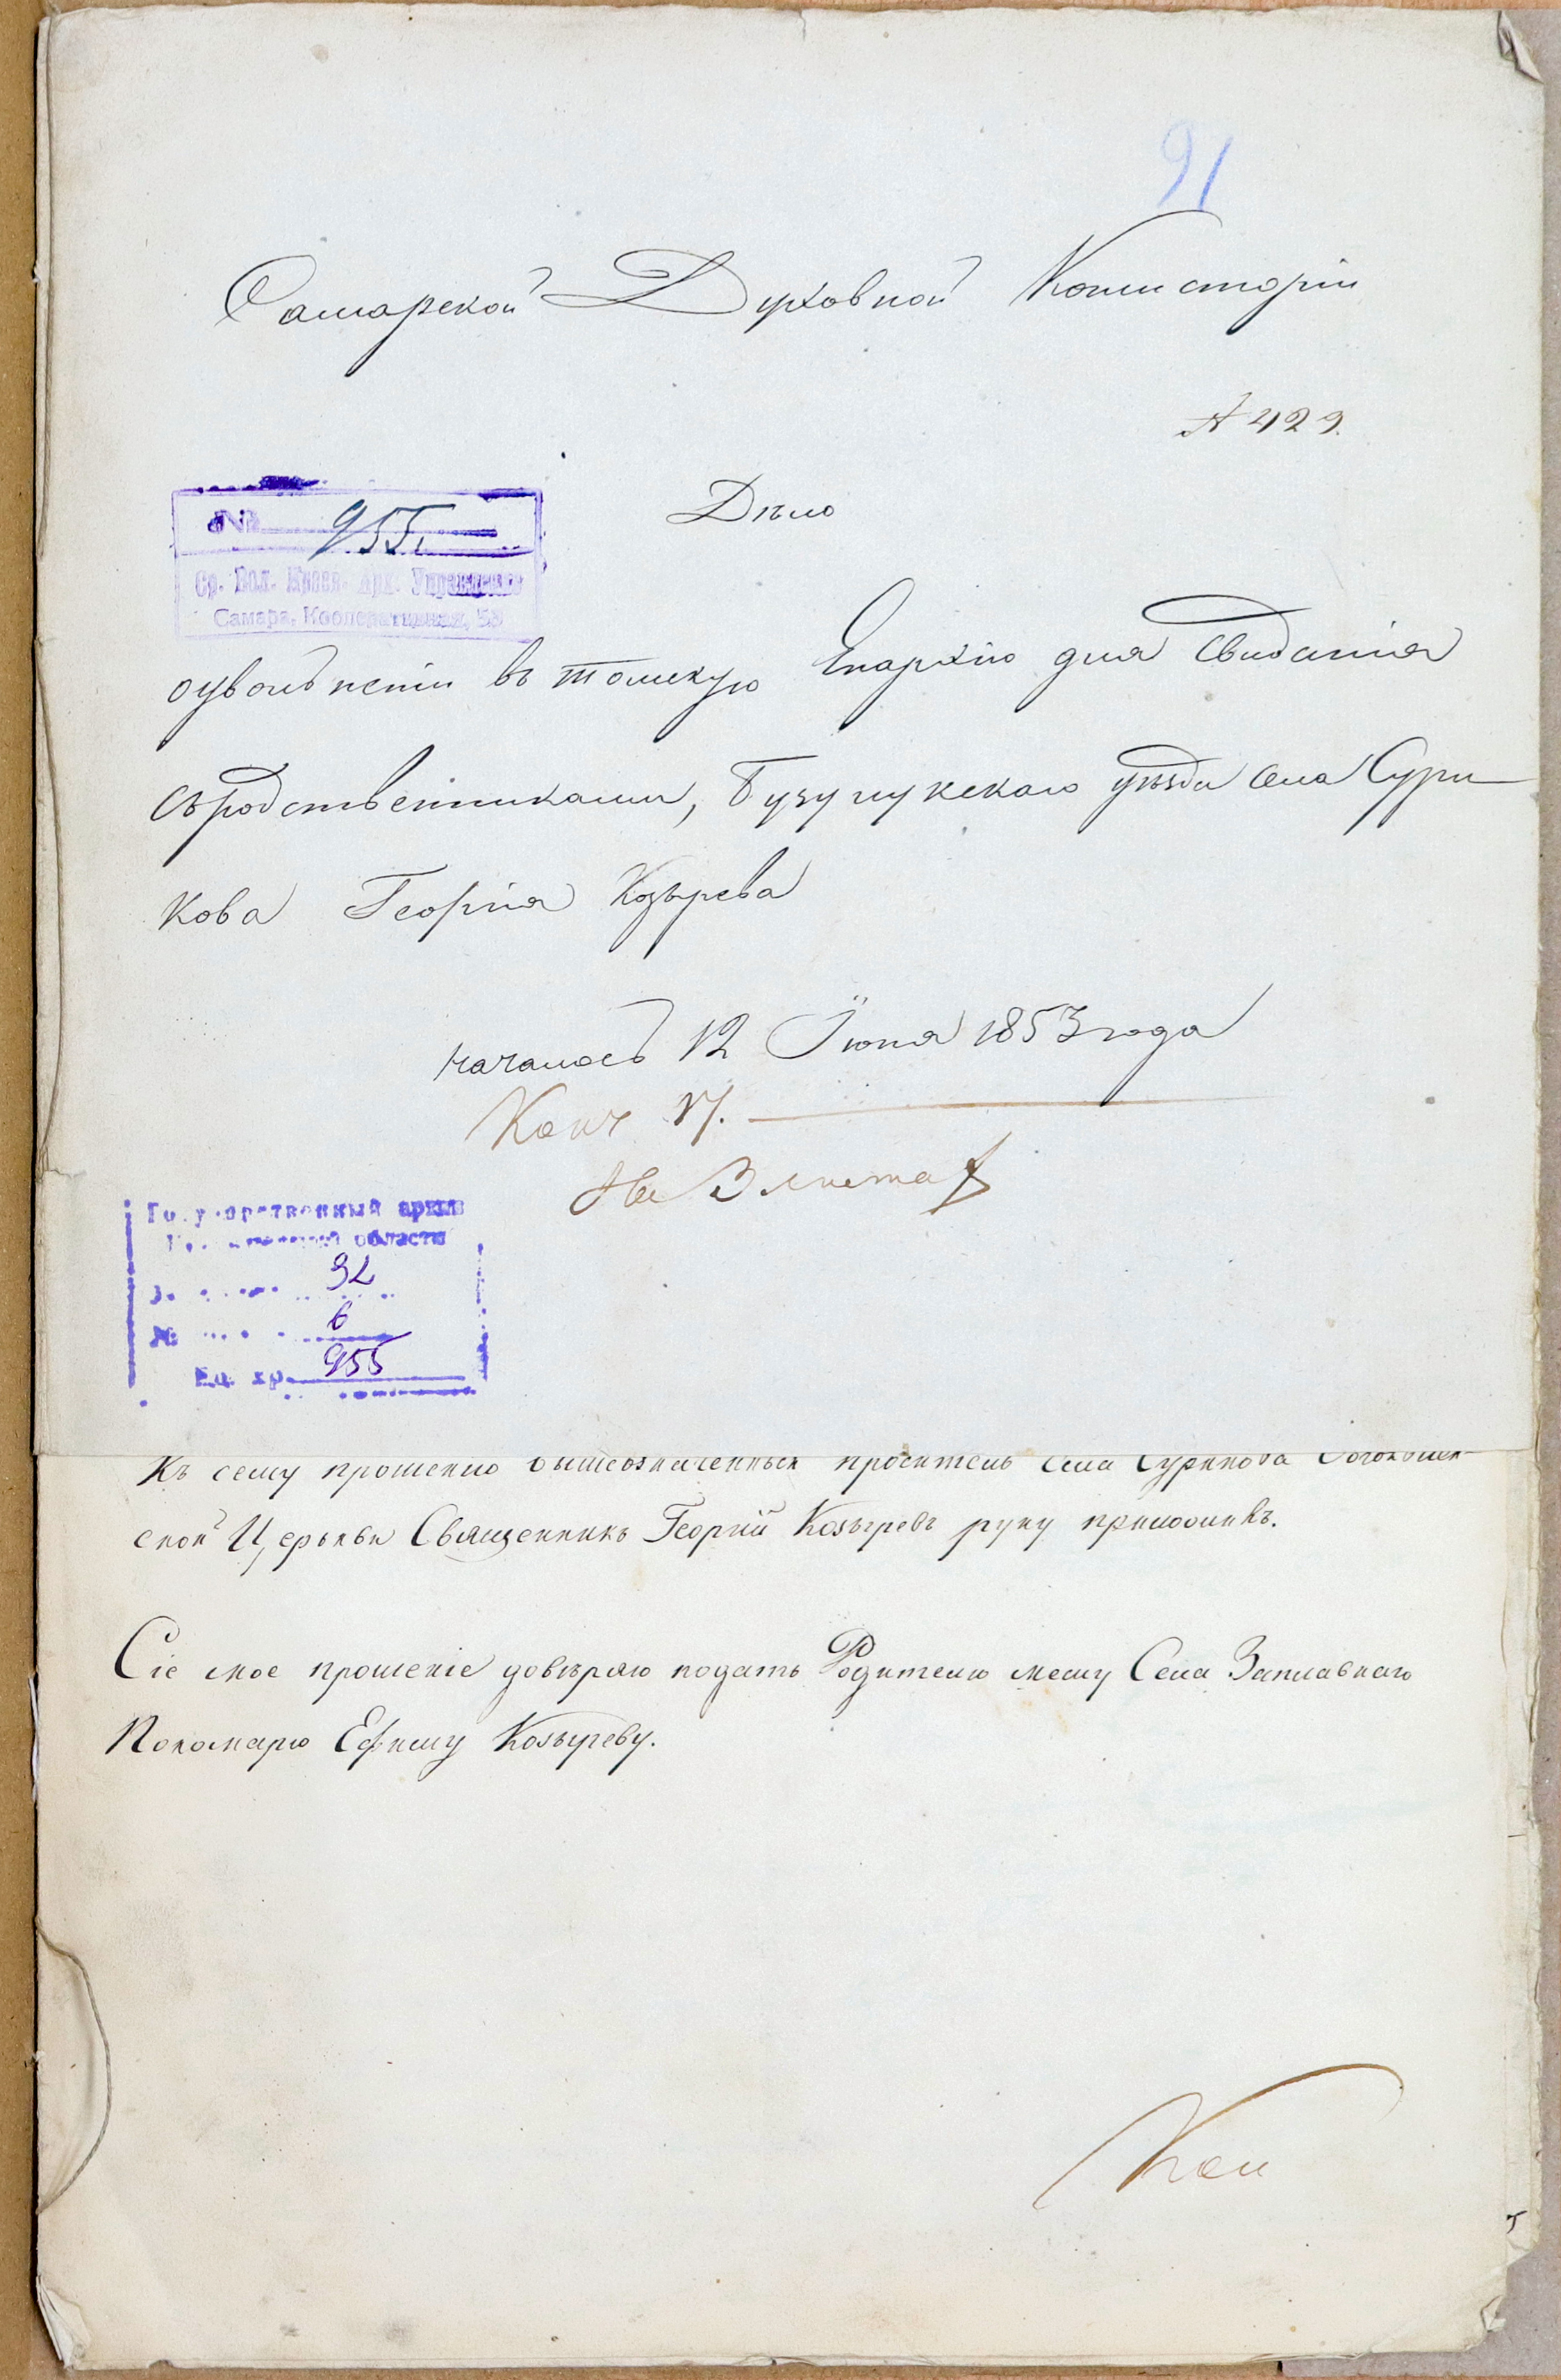 91
Самарской Духовной Консисторіи
№ 429.
Дѣло
№ 955.
Ср. Вол. Краев. Арх. Управление
Самара, Кооперативная, 53
оувольненіи въ томскую Епархію для свиданія
съродственниками, Бузулукскаго уѣзда села Сури-
кова Георгія Козырева
началось 12 Іюня 1853 года
Конч 17.
На 3 листах
Государственный архив
области
32
№ 6
Ед. хр. 955
Къ сему прошенію вышеозначенный проситель села Сурикова Богоявлен-
ской Церькви Священникъ Георгій Козыревъ руку приложилъ.
Сіе мое прошеніе довѣряю подать Родителю моему Села Заплавнаго
Пономарю Ефиму Козыреву.